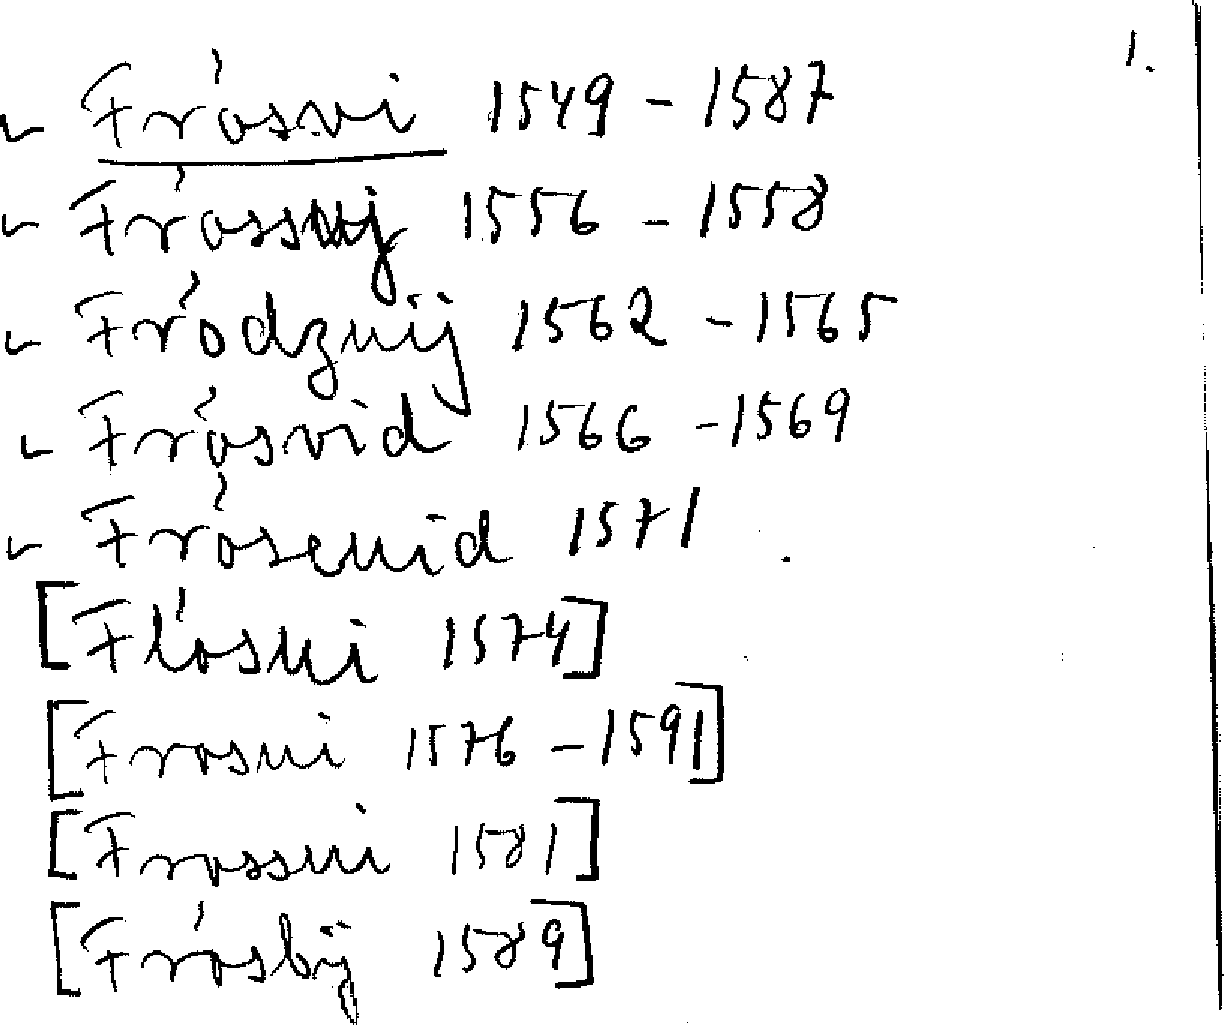 1.
Frósvi 1549 - 1587
Fróssuij 1556 - 1558
Fródzuij 1562 - 1565
Frósvid 1566 - 1569
Fróseuid 1571
[Flósui 1574]
[Frosui 1576 - 1591]
[Frossui 1581]
[Frósbij 1589]